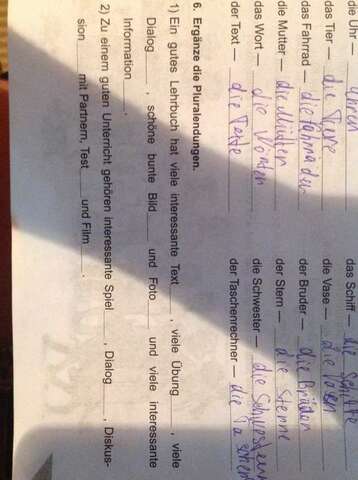 die Uhr —
das Tier — die Tiere
die Mutter — die Mütter
das Fahrrad — die Fahrräder
das Wort — die Wörter
der Text — die Texte
das Schiff — die Schiffe
die Vase — die Vasen
der Bruder — die Brüder
der Stern — die Sterne
die Schwester — die Schwestern
der Taschenrechner — die Taschen
6. Ergänze die Pluralendungen.
1) Ein gutes Lehrbuch hat viele interessante Text____, viele Übung____, viele
Dialog____, schöne bunte Bild____ und Foto____ und viele interessante
Information____.
2) Zu einem guten Unterricht gehören interessante Spiel____, Dialog____, Diskus-
sion____ mit Partnern, Test____ und Film____.